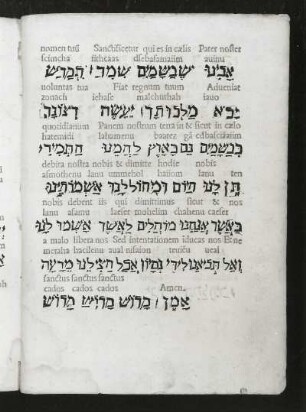 nomen tuū Sanctificetur qui es in cælis Pater noster
scimcha iithcaas discbasamaim auinu
אבינו שבשמים שמך הקדש
uoluntas tua Fiat regnum tuum Adueniat
zonach iehase malchuthah iauo
יבא מלכותך יעשה רצונה
quotidianum Panem nostrum terra ūt & sicut in cælo
hatemidi lahumenu baarez gā cdbascāmim
כבשמים גם בארץ לחמנו התמידי
debita nostra nobis & dimitte hodie nobis
asmothenu lanu ummehol haiom lanu ten
תן לנו היום ומחול לנו אשמותינו
nobis debent iis qui dimittimus sicut & nos
lanu asamu laeser mohelim anahenu caeser
כאשר אנחנו מוחלים לאשר אשמו לנו
a malo libera nos Sed in tentationem iducas nos Et ne
meraha hacilenu aual nisaion ueal
ואל תביאנו לידי נסיון אבל הצילנו מרעה
sanctus sanctus sanctus
cados cados cados Amen.
אמן קדוש קדוש קדוש